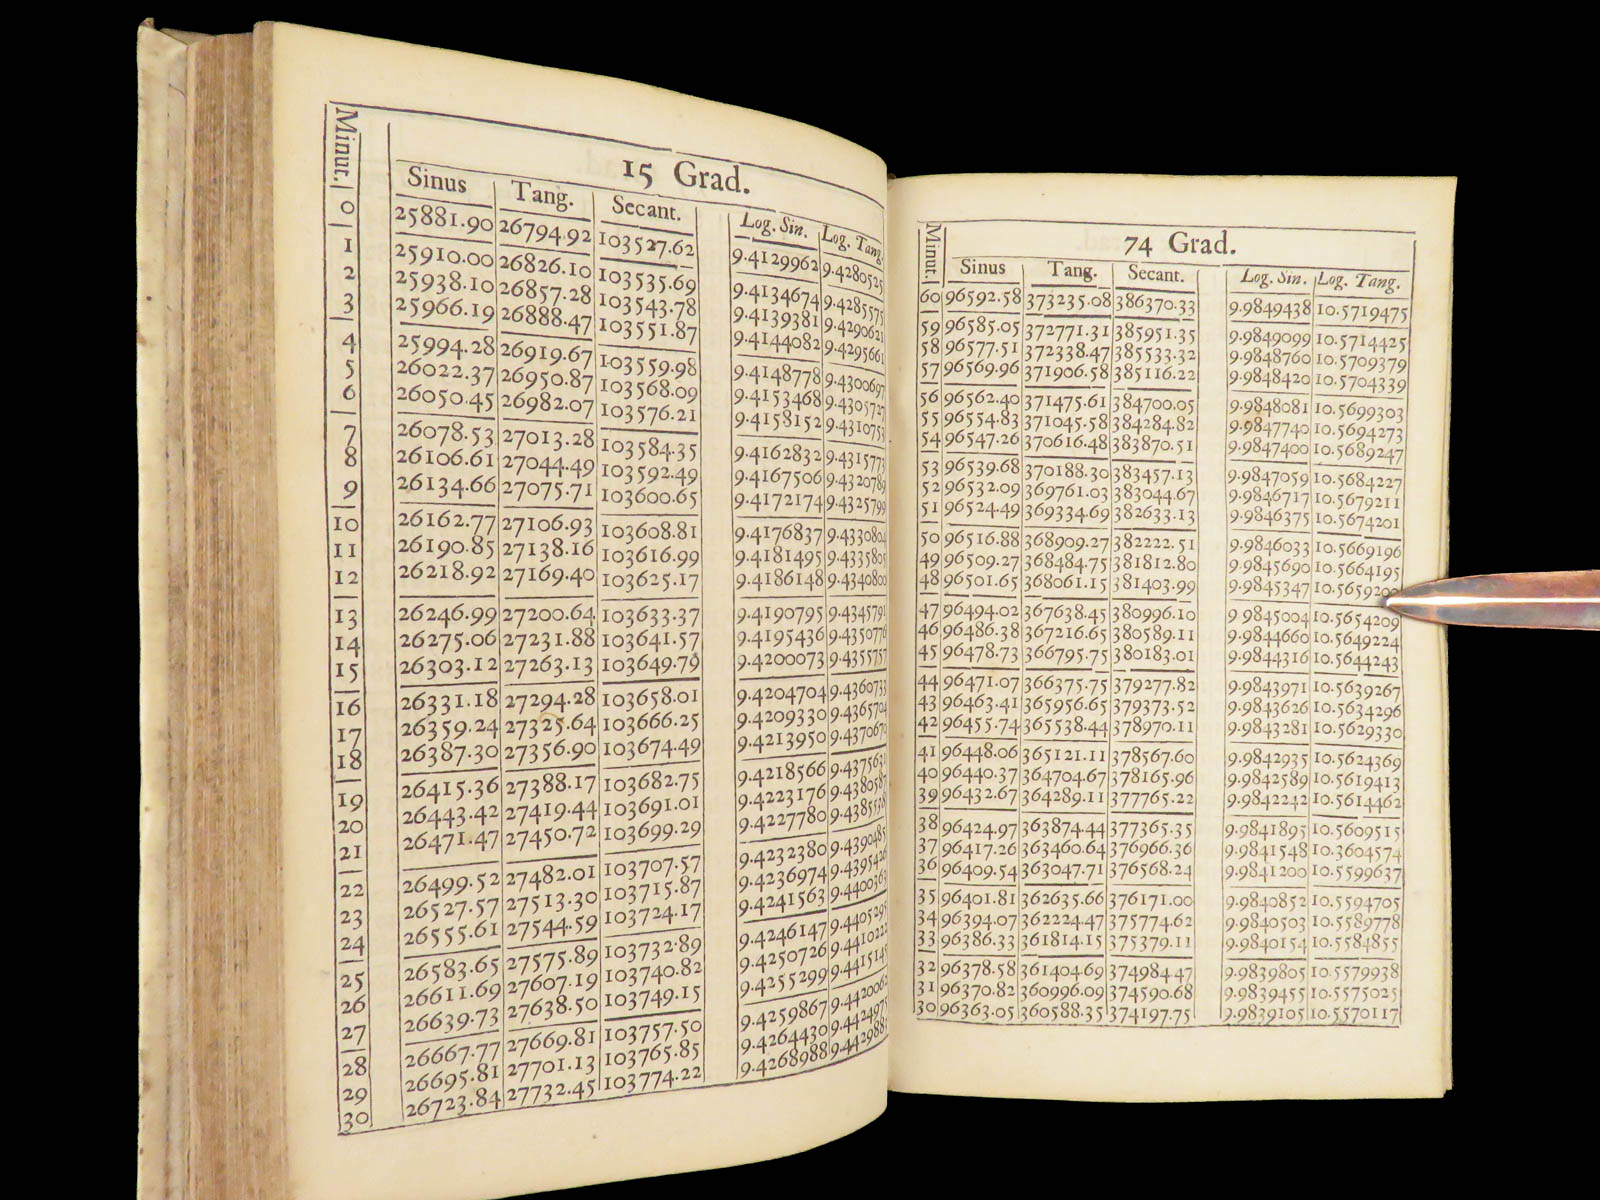 15 Grad.
Minut. Sinus Tang. Secant. Log. Sin. Log. Tang.
0 25881.90 26794.92 103527.62 9.4129962 9.4280525
1 25910.00 26826.10 103535.69 9.4134674 9.4285575
2 25938.10 26857.28 103543.78 9.4139381 9.4290621
3 25966.19 26888.47 103551.87 9.4144082 9.4295661
4 25994.28 26919.67 103559.98 9.4148778 9.4300697
5 26022.37 26950.87 103568.09 9.4153468 9.4305727
6 26050.45 26982.07 103576.21 9.4158152 9.4310753
7 26078.53 27013.28 103584.35 9.4162832 9.4315773
8 26106.61 27044.49 103592.49 9.4167506 9.4320789
9 26134.66 27075.71 103600.65 9.4172174 9.4325799
10 26162.77 27106.93 103608.81 9.4176837 9.4330804
11 26190.85 27138.16 103616.99 9.4181495 9.4335805
12 26218.92 27169.40 103625.17 9.4186148 9.4340800
13 26246.99 27200.64 103633.37 9.4190795 9.4345791
14 26275.06 27231.88 103641.57 9.4195436 9.4350776
15 26303.12 27263.13 103649.79 9.4200073 9.4355757
16 26331.18 27294.28 103658.01 9.4204704 9.4360733
17 26359.24 27325.64 103666.25 9.4209330 9.4365704
18 26387.30 27356.90 103674.49 9.4213950 9.4370670
19 26415.36 27388.17 103682.75 9.4218566 9.4375631
20 26443.42 27419.44 103691.01 9.4223176 9.4380587
21 26471.47 27450.72 103699.29 9.4227780 9.4385538
22 26499.52 27482.01 103707.57 9.4232380 9.4390485
23 26527.57 27513.30 103715.87 9.4236974 9.4395426
24 26555.61 27544.59 103724.17 9.4241563 9.4400363
25 26583.65 27575.89 103732.89 9.4246147 9.4405295
26 26611.69 27607.19 103740.82 9.4250726 9.4410222
27 26639.73 27638.50 103749.15 9.4255299 9.4415145
28 26667.77 27669.81 103757.50 9.4259867 9.4420062
29 26695.81 27701.13 103765.85 9.4264430 9.4424975
30 26723.84 27732.45 103774.22 9.4268988 9.4429883
74 Grad.
Minut. Sinus Tang. Secant. Log. Sin. Log. Tang.
60 96592.58 373235.08 386370.33 9.9849438 10.5719475
59 96585.05 372771.31 385951.35 9.9849099 10.5714425
58 96577.51 372338.47 385533.32 9.9848760 10.5709379
57 96569.96 371906.58 385116.22 9.9848420 10.5704339
56 96562.40 371475.61 384700.05 9.9848081 10.5699303
55 96554.83 371045.58 384284.82 9.9847740 10.5694273
54 96547.26 370616.48 383870.51 9.9847400 10.5689247
53 96539.68 370188.30 383457.13 9.9847059 10.5684227
52 96532.09 369761.03 383044.67 9.9846717 10.5679211
51 96524.49 369334.69 382633.13 9.9846375 10.5674201
50 96516.88 368909.27 382222.51 9.9846033 10.5669196
49 96509.27 368484.75 381812.80 9.9845690 10.5664195
48 96501.65 368061.15 381403.99 9.9845347 10.5659200
47 96494.02 367638.45 380996.10 9.9845004 10.5654209
46 96486.38 367216.65 380589.11 9.9844660 10.5649224
45 96478.73 366795.75 380183.01 9.9844316 10.5644243
44 96471.07 366375.75 379277.82 9.9843971 10.5639267
43 96463.41 365956.65 379373.52 9.9843626 10.5634296
42 96455.74 365538.44 378970.11 9.9843281 10.5629330
41 96448.06 365121.11 378567.60 9.9842935 10.5624369
40 96440.37 364704.67 378165.96 9.9842589 10.5619413
39 96432.67 364289.11 377765.22 9.9842242 10.5614462
38 96424.97 363874.44 377365.35 9.9841895 10.5609515
37 96417.26 363460.64 376966.36 9.9841548 10.3604574
36 96409.54 363047.71 376568.24 9.9841200 10.5599637
35 96401.81 362635.66 376171.00 9.9840852 10.5594705
34 96394.07 362224.47 375774.62 9.9840503 10.5589778
33 96386.33 361814.15 375379.11 9.9840154 10.5584855
32 96378.58 361404.69 374984.47 9.9839805 10.5579938
31 96370.82 360996.09 374590.68 9.9839455 10.5575025
30 96363.05 360588.35 374197.75 9.9839105 10.5570117